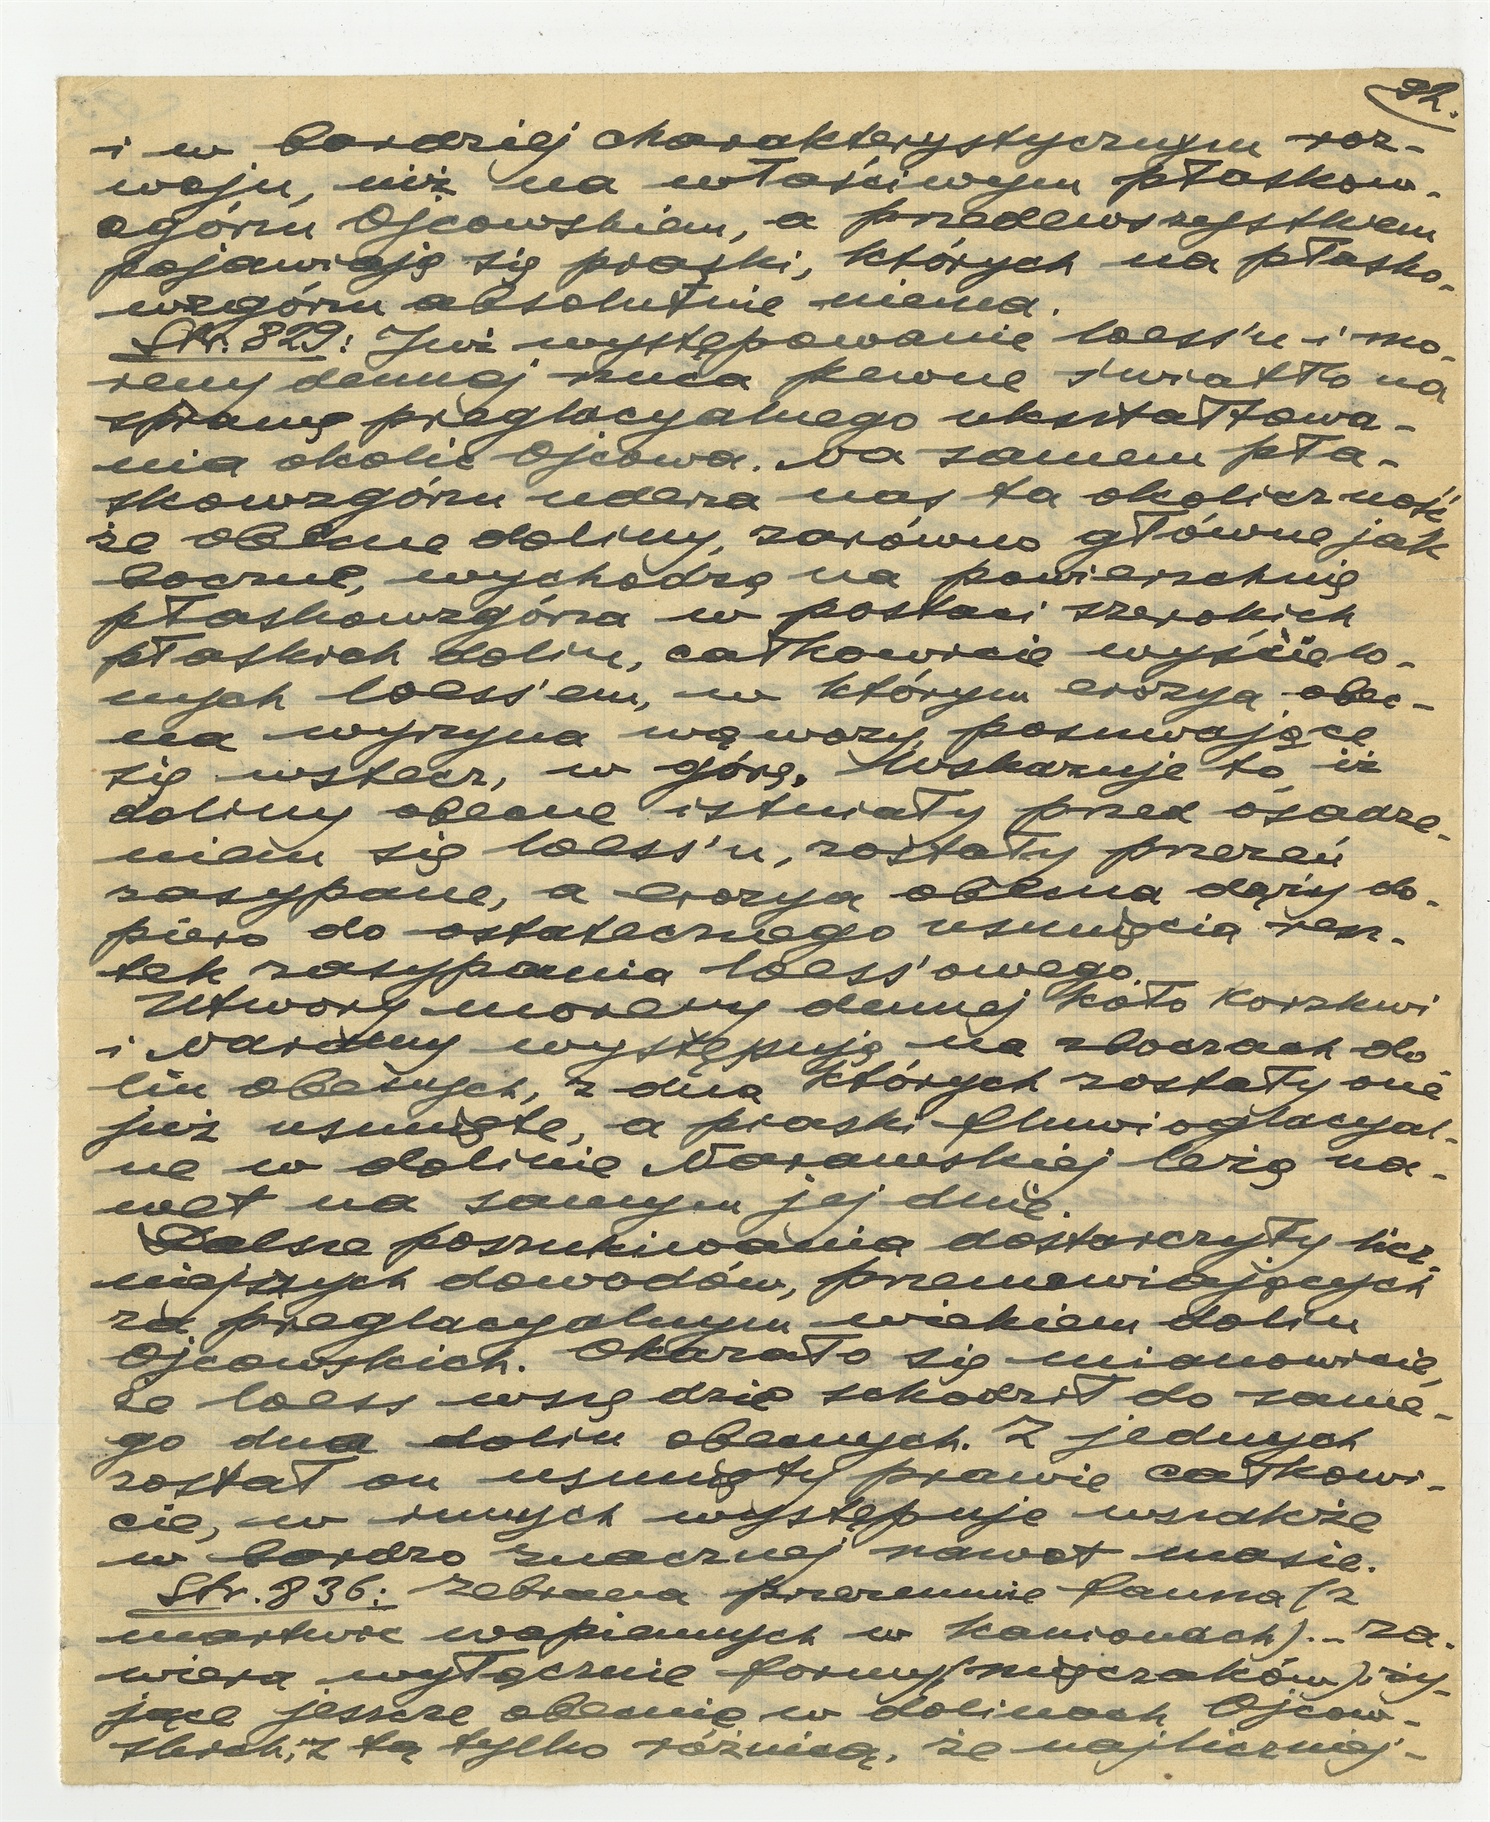 i w bardziej charakterystycznym roz-
woju, niż na właściwym płaskow-
zgórzu Ojcowskiem, a przedewszystkiem
pojawiają się piaski, których na płasko-
wzgórzu absolutnie niema.
Str. 829: Już występowanie loess'u i mo-
reny dennej rzuca pewne światło na
sprawę preglacyalnego ukształtowa-
nia okolic Ojcowa. Na samem pła-
skowzgórzu uderza nas ta okoliczność
że obecne doliny, zarówno główne jak
boczne, wychodzą na powierzchnię
płaskowzgórza w postaci szerokich
płaskich dolin, całkowicie wyścielo-
nych loess'em, w którym erozya obec-
na wyrzyna wąwozy posuwające
się wstecz, w górę. Wskazuje to, iż
doliny obecne istniały przed osadze-
niem się loess'u, zostały przezeń
zasypane, a erozya obecna dąży do-
piero do ostatecznego usunięcia resz-
tek zasypania loess'owego.
Utwory moreny dennej koło Korzkwi
i Naramy występują na zboczach do
lin obecnych, z dna których zostały one
już usunięte, a piaski fluwioglacyal-
ne w dolinie Naramskiej leżą na-
wet na samym jej dnie.
Dalsze poszukiwania dostarczyły licz-
niejszych dowodów, przemawiających
za preglacyalnym wiekiem dolin
Ojcowskich. Okazało się mianowicie,
że loess wszędzie schodził do same-
go dna dolin obecnych. Z jednych
został on usunięty prawie całkowi-
cie, w innych występuje wszakże
w bardzo znacznej nawet masie.
Str. 836: Zebrana przezemnie fauna (z
martwic wapiennych w kanionach)... za-
wiera wyłącznie formy (mięczaków), ży-
jące jeszcze obecnie w dolinach Ojcow-
skich, z tą tylko różnicą, że najliczniej-